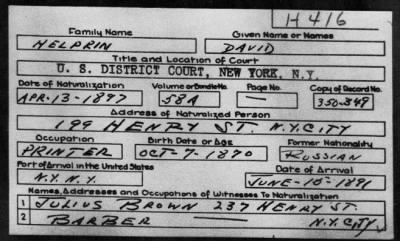 H416
Family Name Given Name or Names
HELPRIN DAVID
Title and Location of Court
U. S. DISTRICT COURT, NEW YORK, N.Y.
Date of Naturalization Volume or Bundle No. Page No. Copy of Record No.
APR-13-1897 58A — 350-349
Address of Naturalized Person
199 HENRY ST N.Y. CITY
Occupation Birth Date or Age Former Nationality
PRINTER OCT-7-1870 RUSSIAN
Port of Arrival in the United States Date of Arrival
N.Y. N.Y. JUNE-10-1891
Names, Addresses and Occupations of Witnesses To Naturalization
1 JULIUS BROWN 237 HENRY ST.
2 BARBER N.Y. CITY